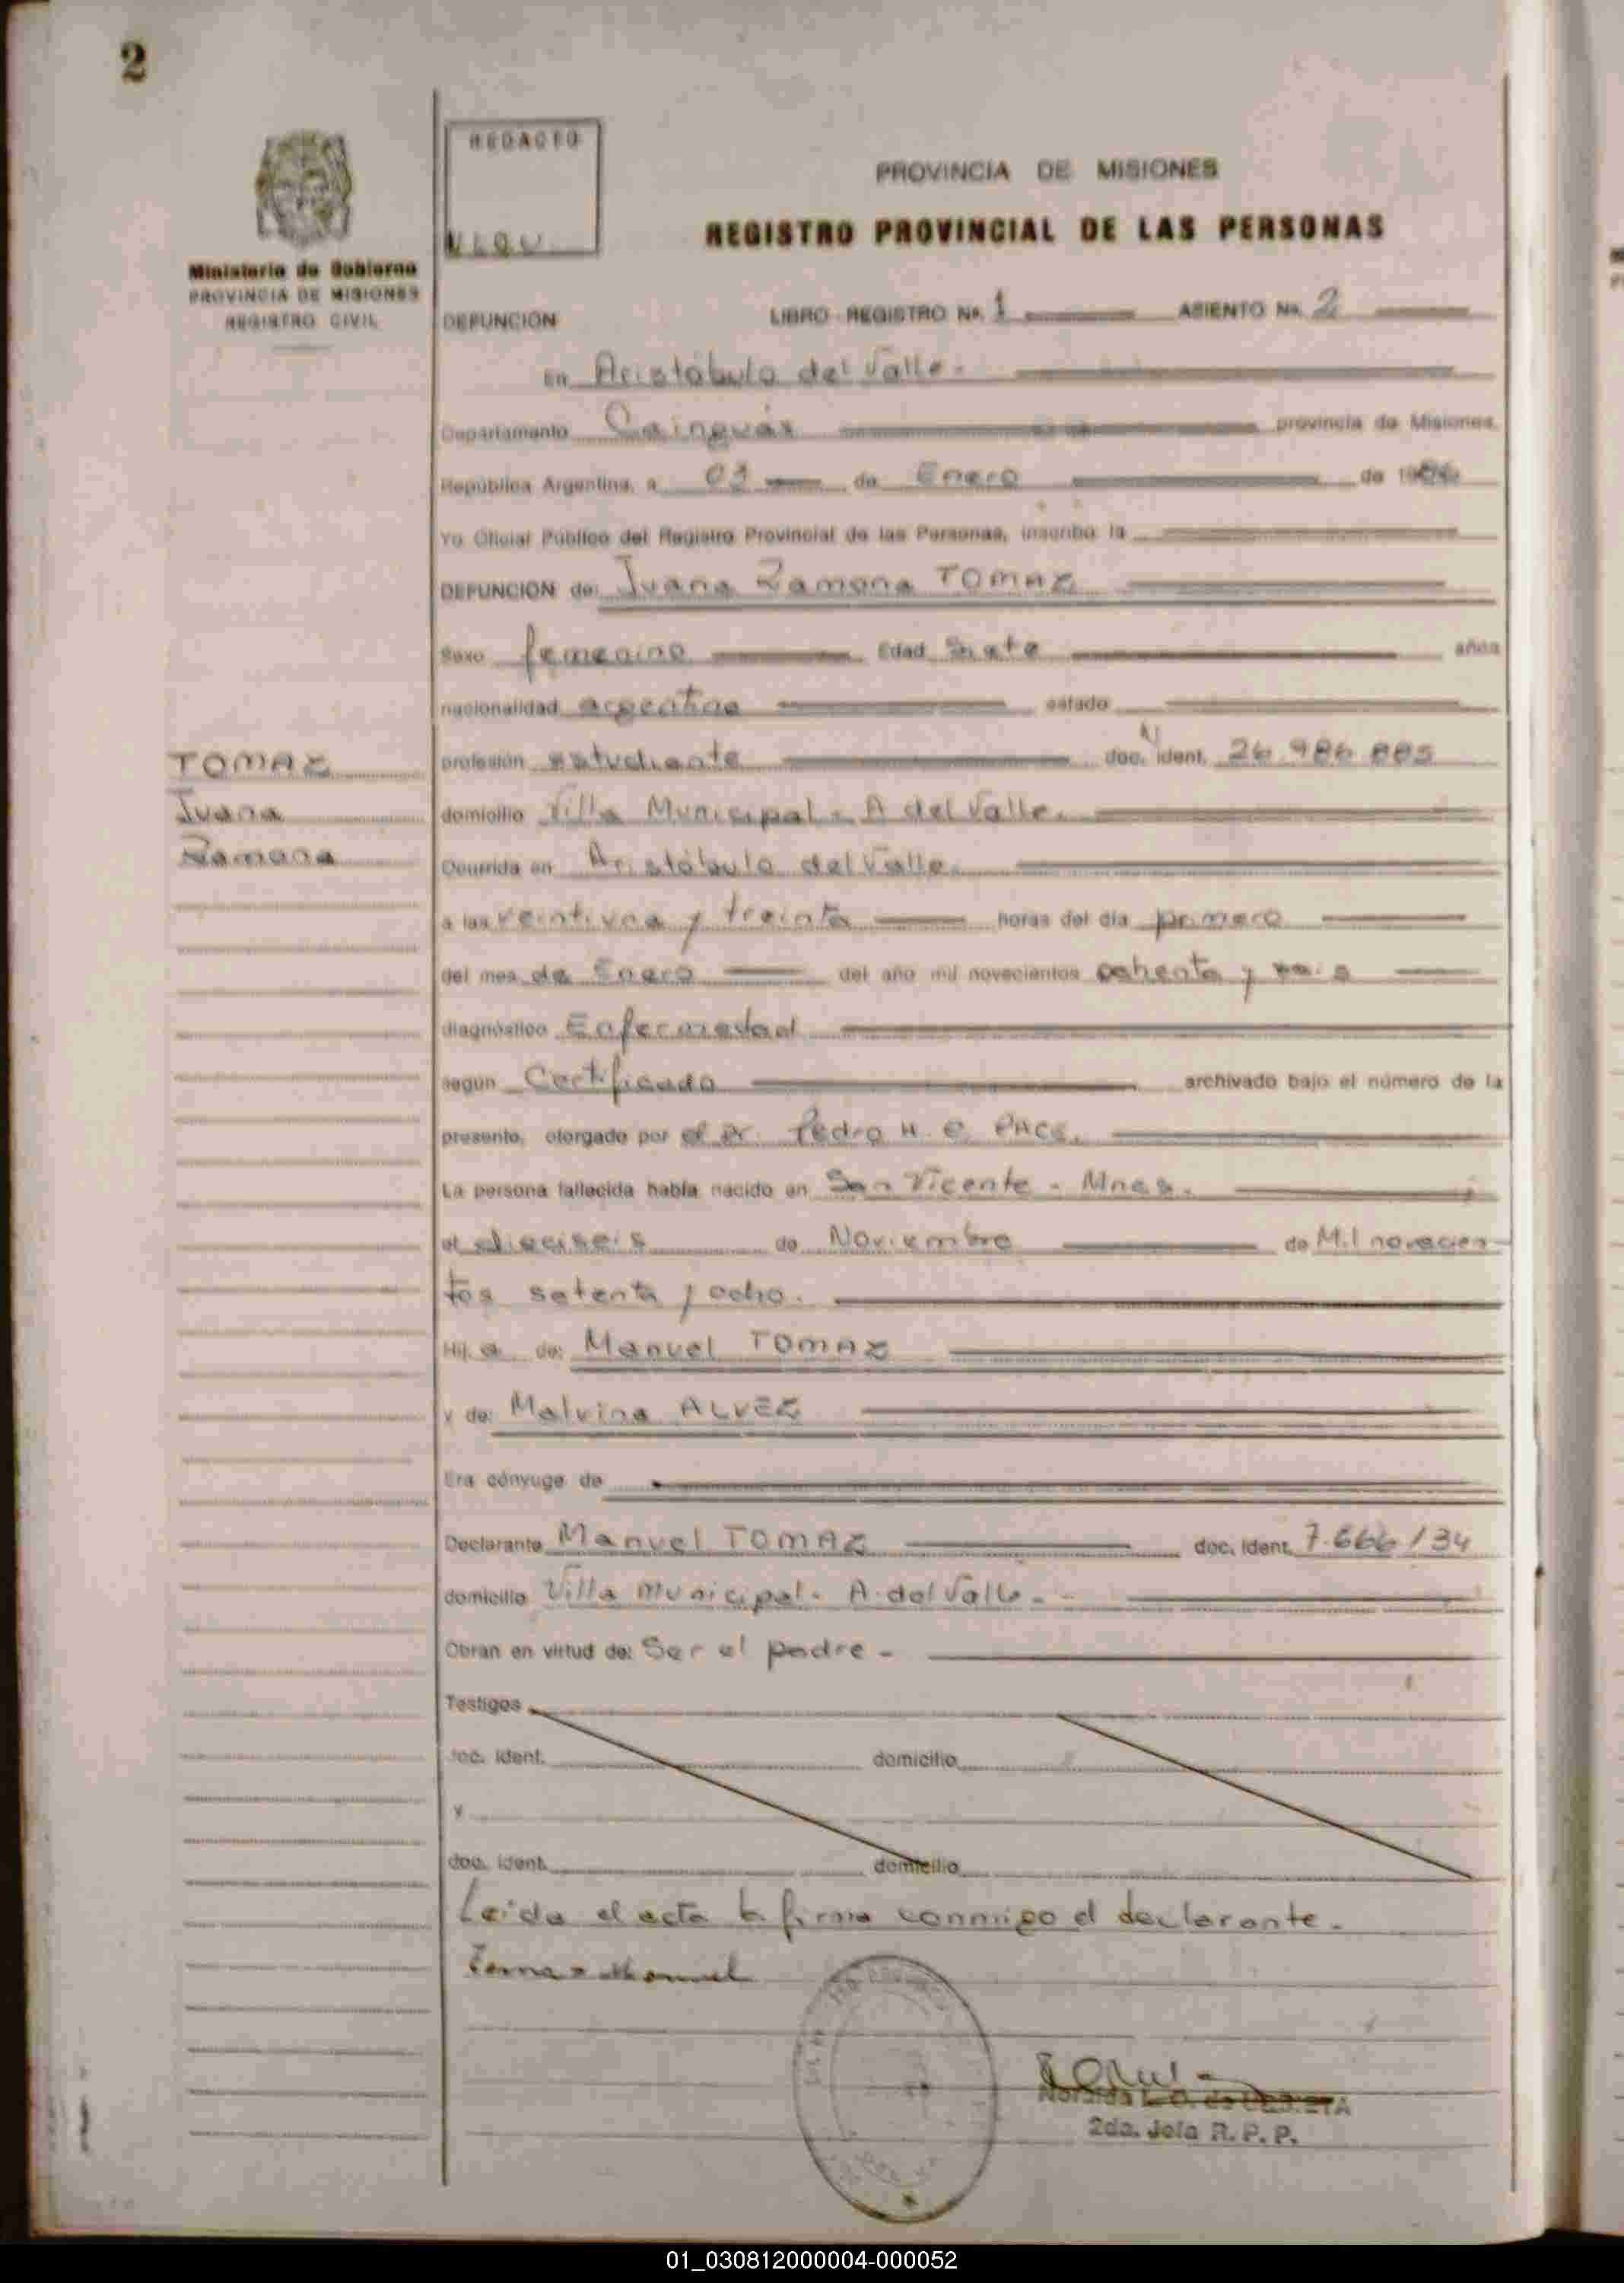 2
REDACTO
PROVINCIA DE MISIONES
REGISTRO PROVINCIAL DE LAS PERSONAS
Ministerio de Gobierno
PROVINCIA DE MISIONES
REGISTRO CIVIL
DEFUNCION LIBRO REGISTRO No. 1 ASIENTO No. 2
en Aristóbulo del Valle.
Departamento Cainguás provincia de Misiones.
República Argentina, a 03 de Enero de 1986
Yo Oficial Público del Registro Provincial de las Personas, inscribo la
DEFUNCION de: Juana Ramona TOMAZ
Sexo femenino Edad Siete años
nacionalidad argentina estado
TOMAZ
Juana
Ramona
profesión estudiante doc. ident. 26.986.885
domicilio Villa Municipal - A del Valle.
Ocurrida en Aristóbulo del Valle.
a las veintiuna y treinta horas del día primero
del mes de Enero del año mil novecientos ochenta y seis
diagnóstico Enfermedad
según Certificado archivado bajo el número de la
presente, otorgado por el Dr. Pedro H. e.
La persona fallecida había nacido en San Vicente - Mnes.
el dieciseis de Noviembre de Mil novecien-
tos setenta y ocho.
Hij a de: Manuel TOMAZ
y de: Malvina ALVEZ
Era cónyuge de
Declarante Manuel TOMAZ doc. ident. 7.666134
domicilio Villa Municipal - A. del Valle - -
Obran en virtud de: Ser el padre -
Testigos
doc. ident. domicilio
y
doc. ident. domicilio
Leida el acta la firma conmigo el declarante.
Tomaz Manuel
2da. Jefa R. P. P.
01_030812000004-000052